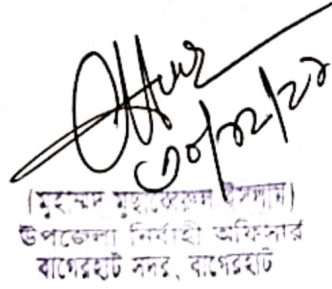 ৩০/১২/২১
(মুহাম্মদ ইসলাম)
উপজেলা নির্বাহী অফিসার
বাগেরহাট সদর, বাগেরহাট